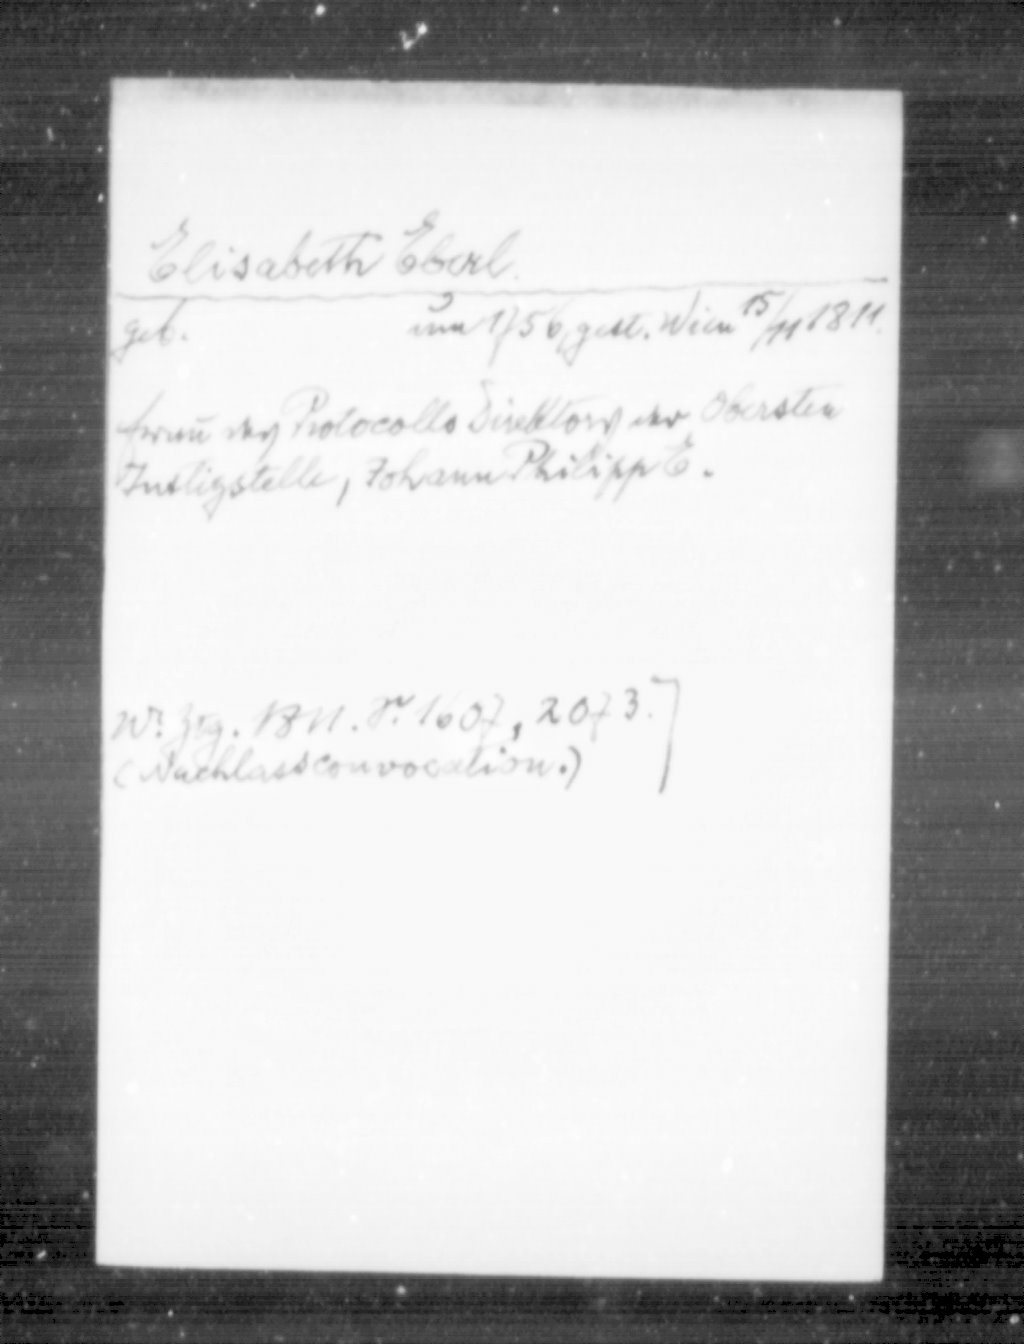 Elisabeth Eberl.
geb. um 1756, gest. Wien 15/11 1811.
Frau des Protocolls Direktors der Obersten
Justizstelle, Johann Philipp E.
Wr. Ztg. 1811. S. 1607, 2073.
(Nachlassconvocation.)